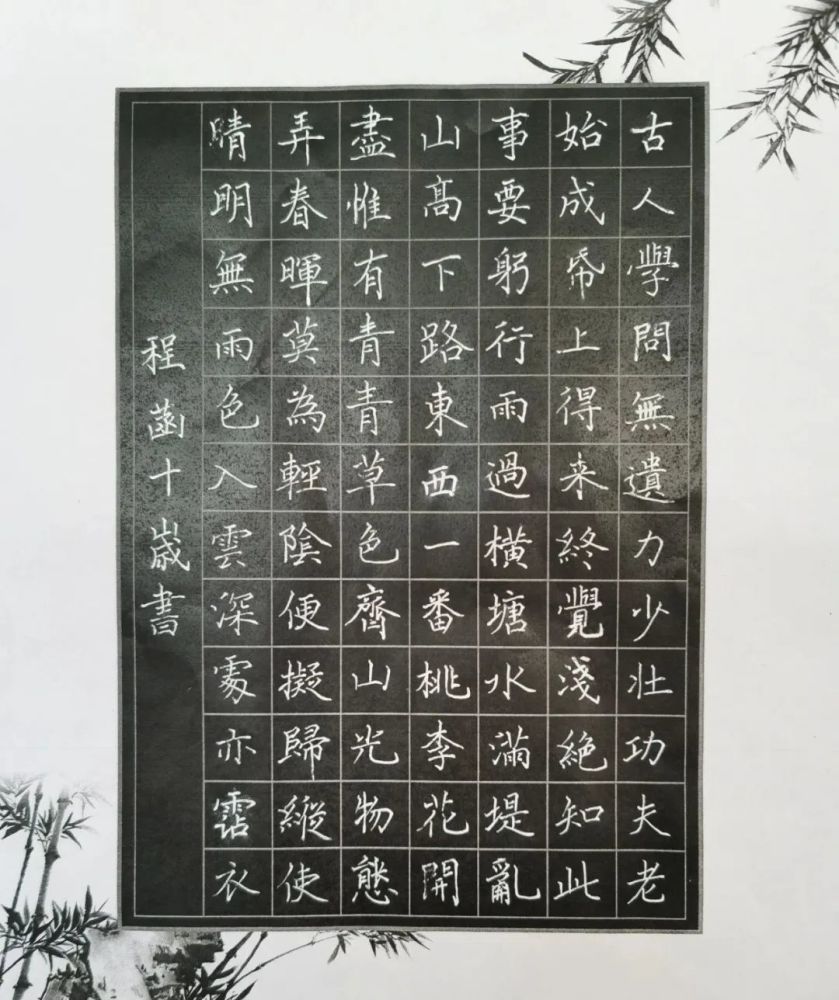 古人學問無遺力少壯功夫老
始成帋上得来終覺淺絶知此
事要躬行雨過橫塘水滿堤亂
山高下路東西一番桃李花開
盡惟有青青草色齊山光物態
弄春暉莫為輕陰便擬歸縱使
晴明無雨色入雲深處亦霑衣
程菡十歲書